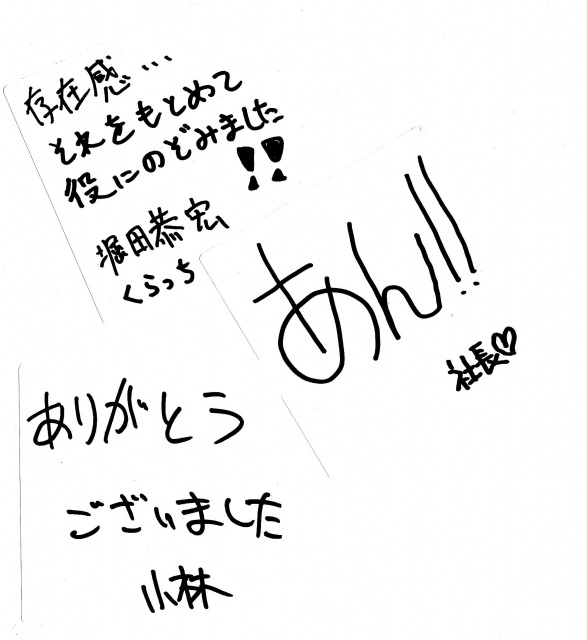 存在感…
それをもとめて
役にのぞみました
!!
堀田恭宏
くらっち
あん!!
社長♡
ありがとう
ございました
小林